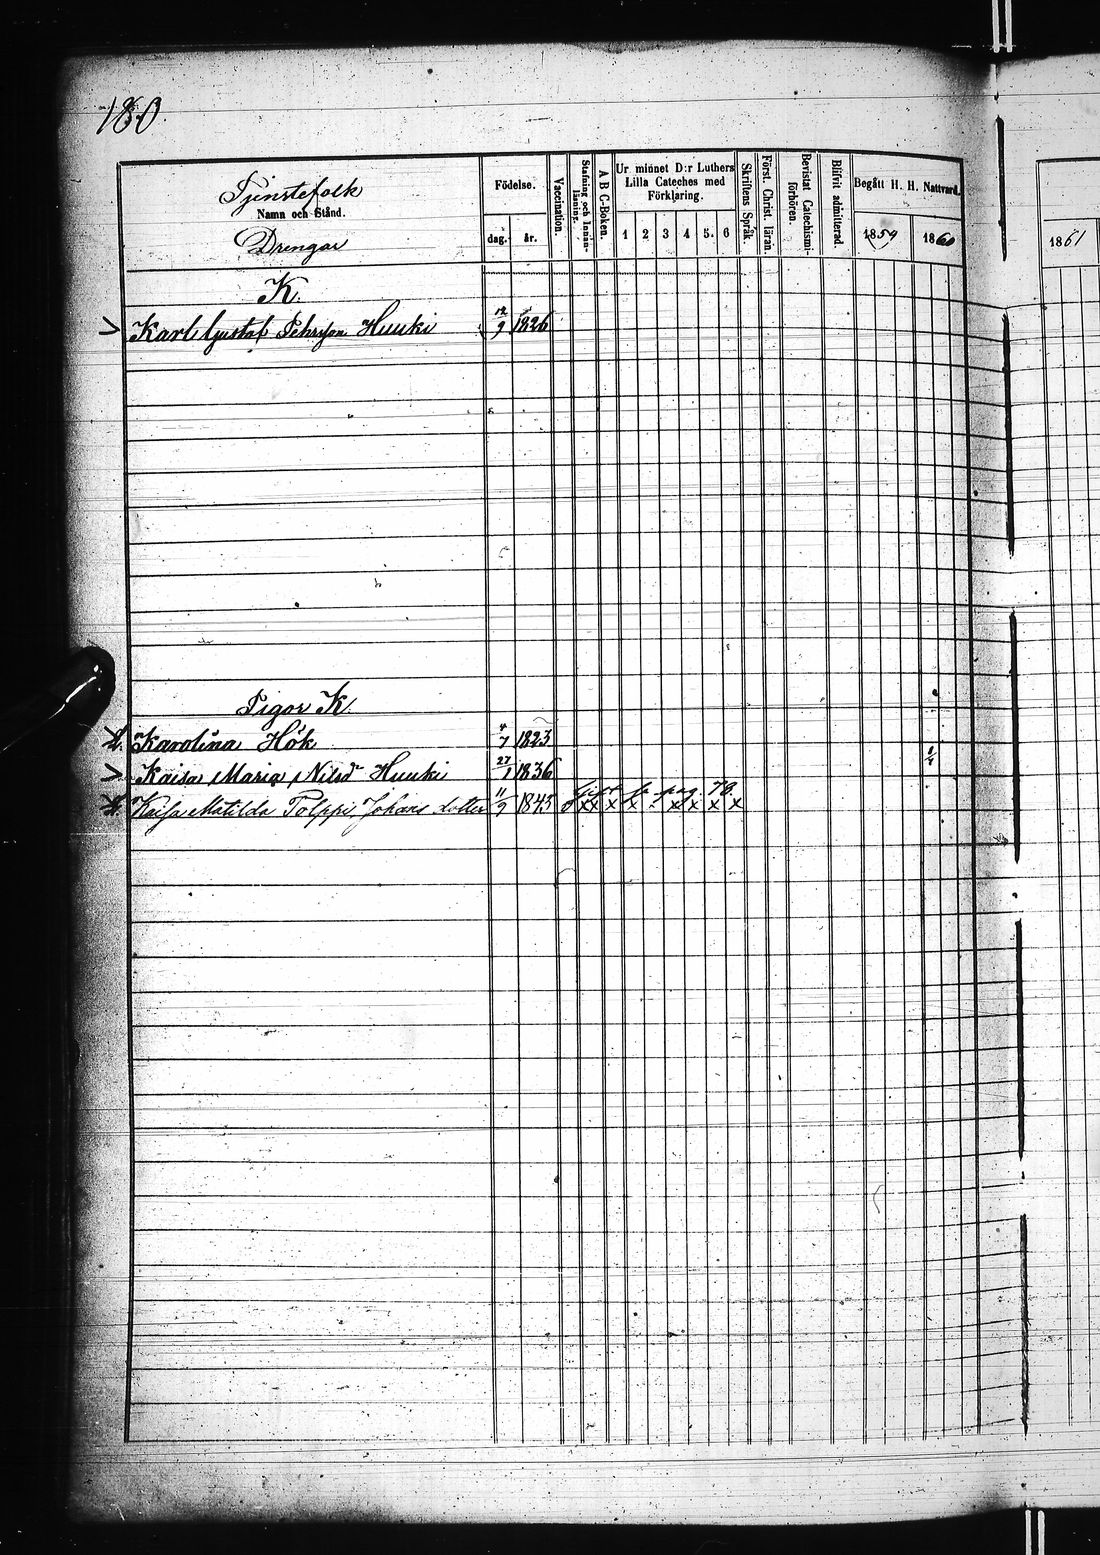 180
Tjenstefolk
Namn och Stånd.
Drengar
Födelse.
dag. år.
Vaccination.
Stafning och Innan-läsning.
A B C-Boken.
Ur minnet D:r Luthers
Lilla Cateches med
Förklaring.
1 2 3 4 5. 6
Skriftens Språk.
Först. Christ. läran.
Bevistat Catechismi-förhören.
Blifvit admitterad.
Begått H. H. Nattvard.
1859 1860
1861
K.
> Karl Gustaf Pehrsson Huuki 12/9 1826
Pigor K.
Karolina Hök 4/7 1823
> Kaisa Maria Nilsd Huuki 27/1 1836
Gift pag. 70.
Kaisa Matilda Polppi Johans dotter 11/9 1843 x x x x x x x x